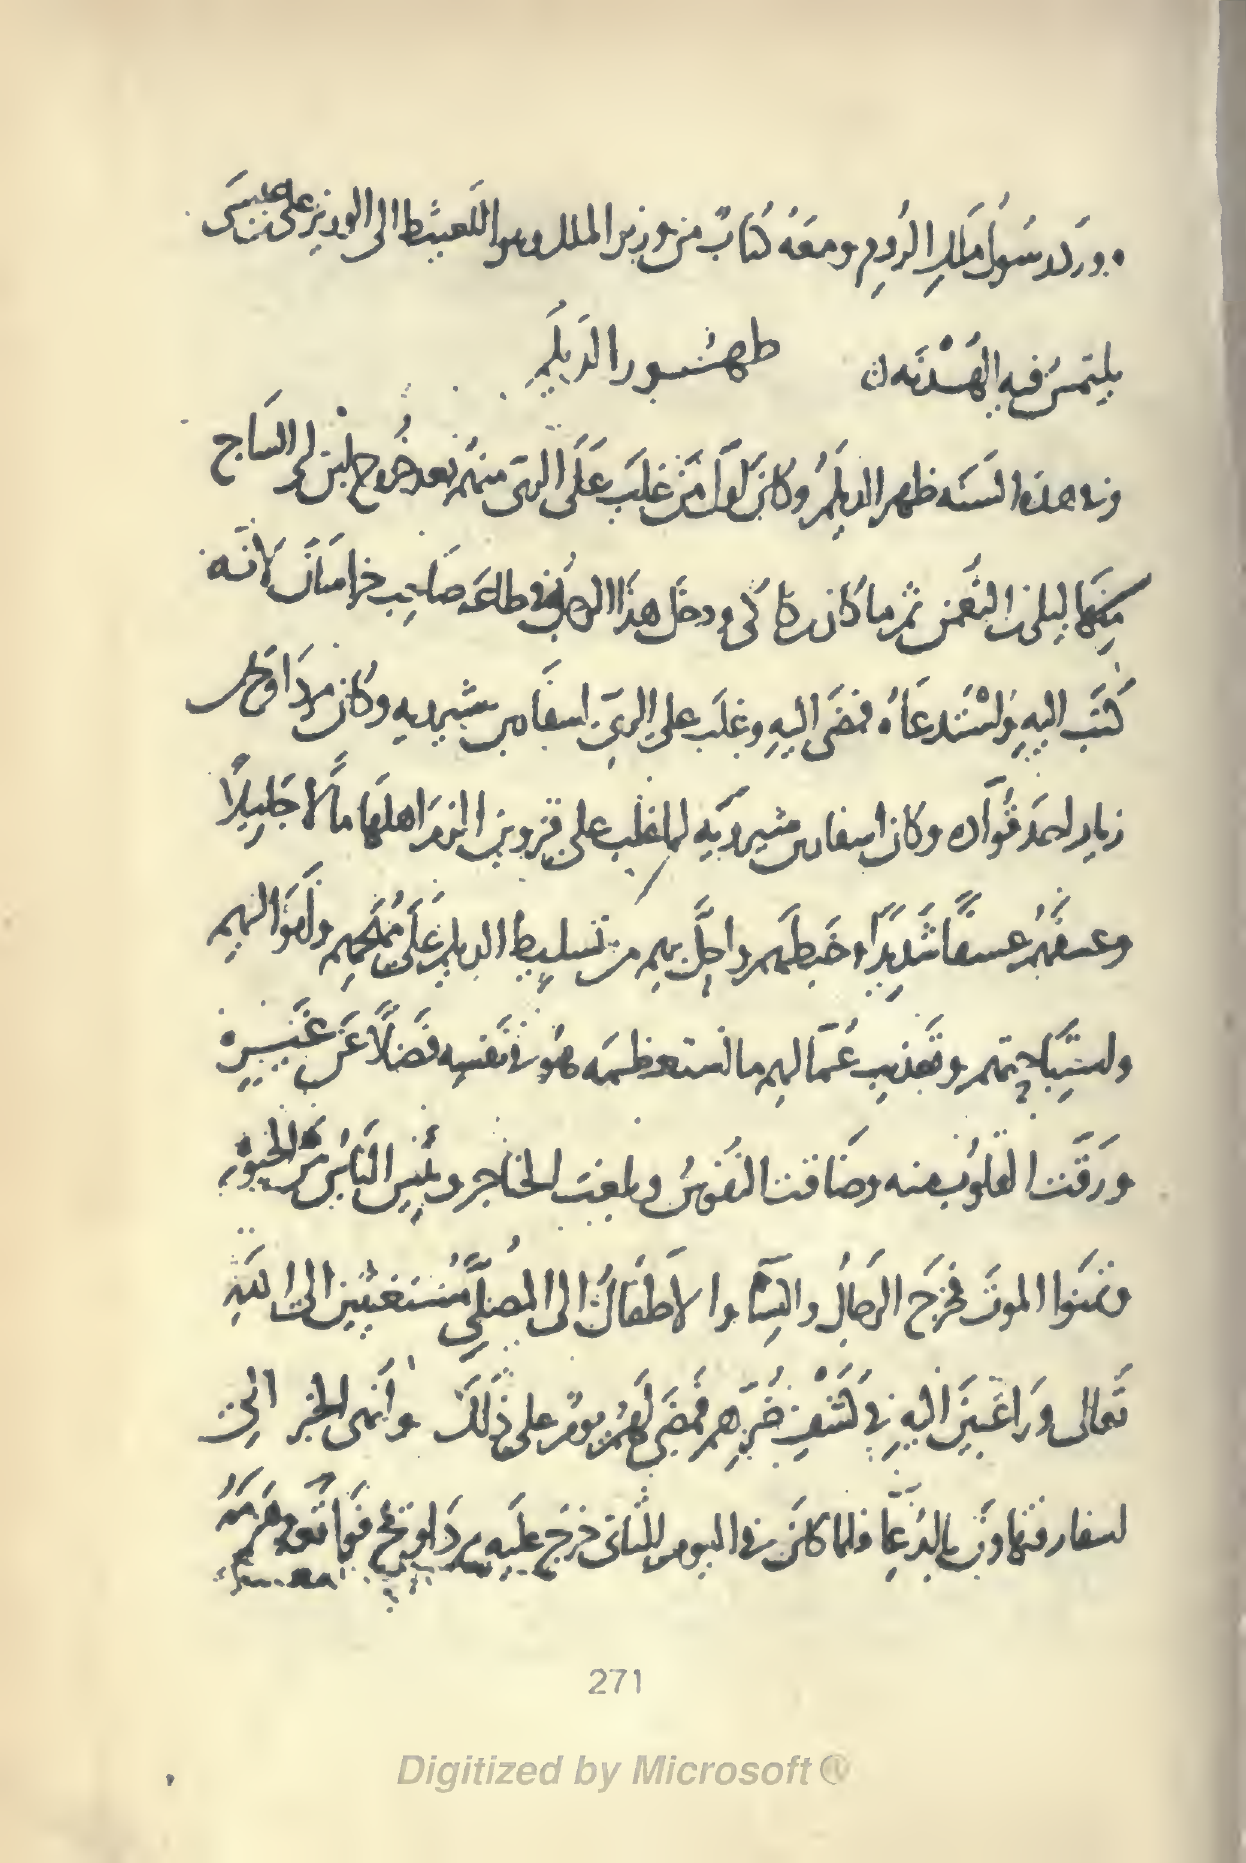 وورد رسول ملك الروم ومعه كتاب من وزير الملك وهو اللغثيط الى الوزير على بن عيسى
يلتمس فيه الهدنه ن ظهور الديلم
وفى هذه السنه ظهر الديلم وكان اول من غلب على الرى منهم بعد خروج ابن ابى الساج
منها ليلى بن النعمن ثم ماكان بن كاكى ودخل هذا الرجل فى طاعه صاحب خراسان لانه
كتب اليه واستدعاه فمضى اليه وغلب على الرى اسفار بن شيرويه وكان مرداويج بن
زيار احد قواده وكان اسفار بن شيرويه لما غلب على قزوين الزم اهلها مالا جليلا
وعسفهم عسفا شديدا وخبطهم واحل بهم من تسليط الديلم على مهجهم واموالهم
واستباحتهم وتعذيب عمالهم ما استعظمه هو فى نفسه فضلا عن غيره
ورقت القلوب منه وضاقت النفوس وبلغت الحناجر ويئس الناس من الحيوه
وتمنوا الموت فخرج الرجال والنساء والاطفال الى المصلى مستغيثين الى الله
تعالى وراغبين اليه فى كشف ضرهم فمضى لهم يوم على ذلك وانهى الخبر الى
اسفار فتهاون بالدعاء فلما كان فى اليوم الثانى خرج عليه مرداويج فواقعه وهزمه
271
Digitized by Microsoft ®